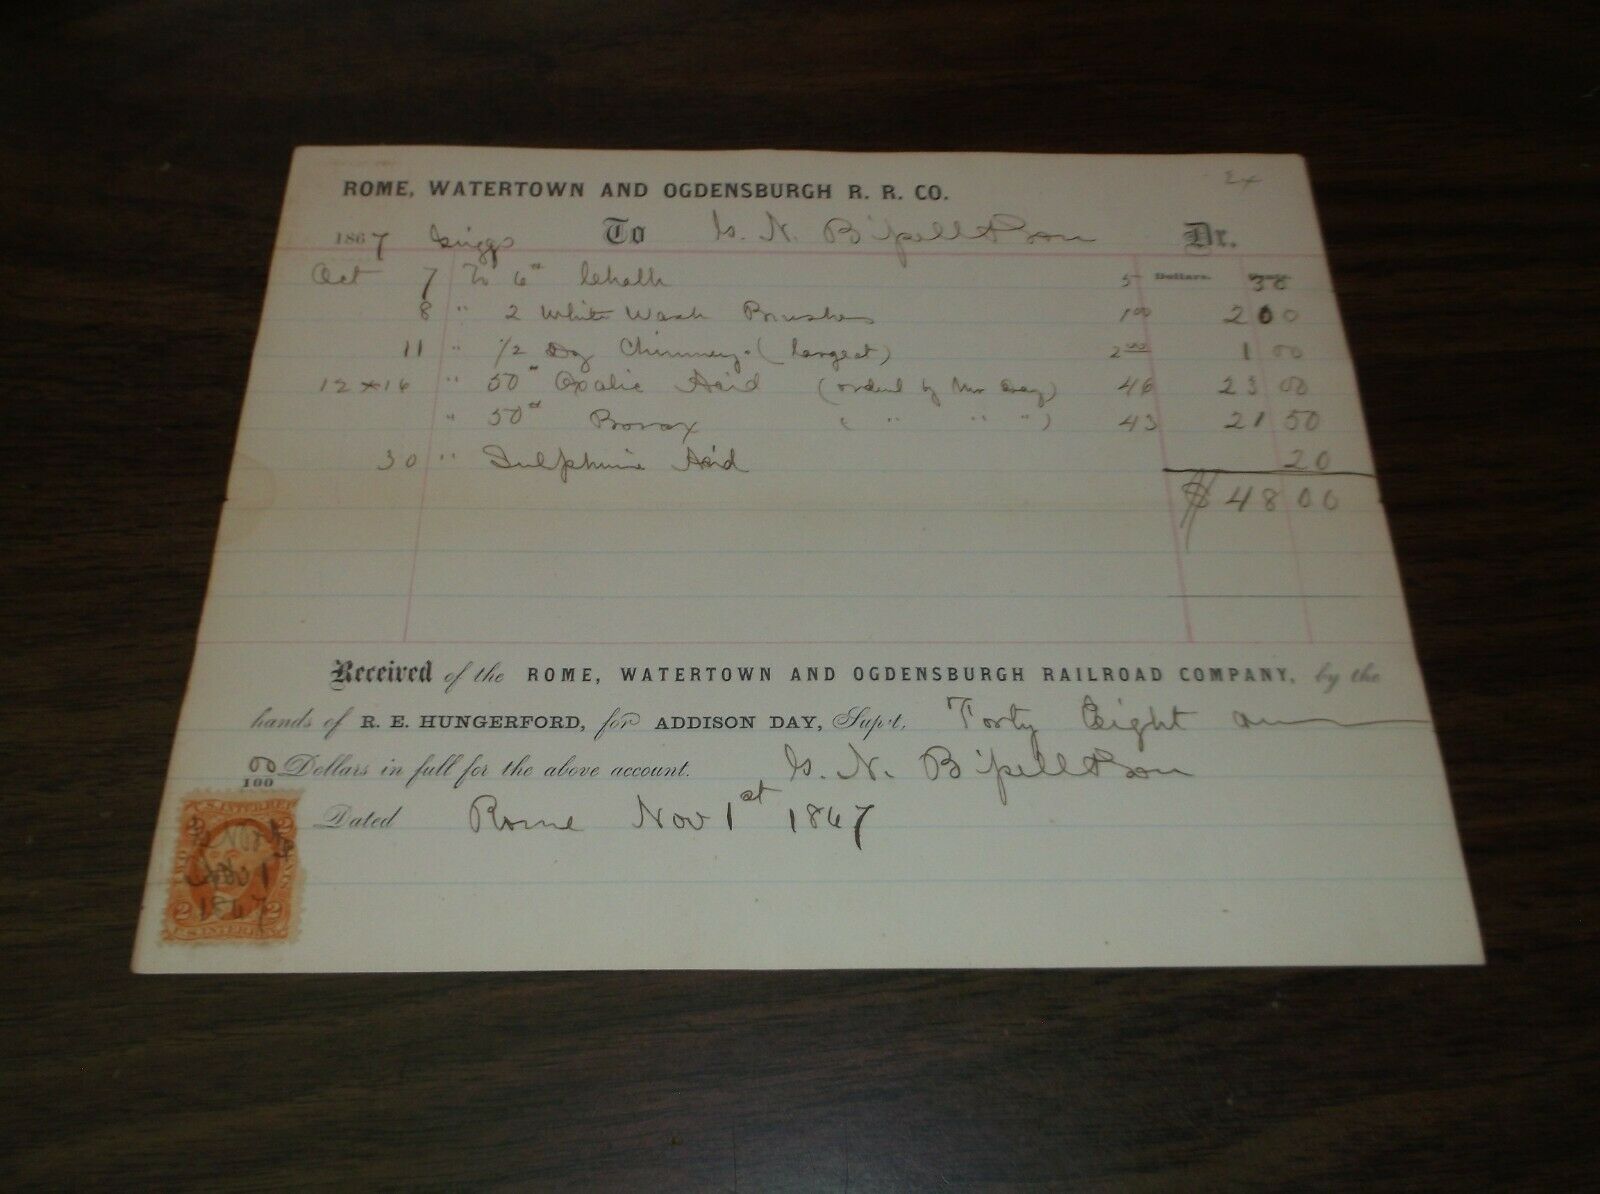 Ex
ROME, WATERTOWN AND OGDENSBURGH R. R. CO.
1867 To G. N. Bissell & Son Dr.
Dollars. Cents.
Oct 7 To 6# Chalk 5 30
8 " 2 White Wash Brushes 1 00 2 00
11 " 1/2 Doz Chimneys (Largest) 2 00 1 00
12 & 16 " 50# Oxalic Acid (ordered by Mr Day) 46 23 00
" 50# Borax ( " " " ) 43 21 50
30 " Sulphuric Acid 20
$ 48 00
Received of the ROME, WATERTOWN AND OGDENSBURGH RAILROAD COMPANY, by the
hands of R. E. HUNGERFORD, for ADDISON DAY, Sup't, Forty Eight and
00/100 Dollars in full for the above account. G. N. Bissell & Son
Dated Rome Nov 1st 1867
U.S. INTER. REV.
2 2
TWO CENTS
Nov 1
1867
2 2
U.S. INTER. REV.